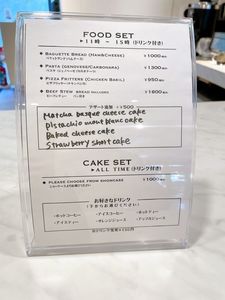 FOOD SET
▸11時 ～ 15時 (ドリンク付き)
◆ Baguette Bread (Ham&Cheese) ¥1000
バゲットサンド(ハムチーズ)
◆ Pasta (Genovese/Carbonara) ¥1300
パスタ (ジェノベーゼ/カルボナーラ)
◆ Pizza Fritters (Chicken Basil) ¥950
◆ Beef Stew bread included ¥1800
ビーフシチュー パン付き
デザート追加 +¥500
Matcha basque cheese cake
Pistachio mont blanc cake
Baked cheese cake
Strawberry short cake
CAKE SET
▸ALL TIME (ドリンク付き)
◆ Please choose from showcase ¥1000
ショーケースよりお選びください
お好きなドリンク
(下からお選びください)
・ホットコーヒー ・アイスコーヒー ・ホットティー
・アイスティー ・オレンジジュース ・アップルジュース